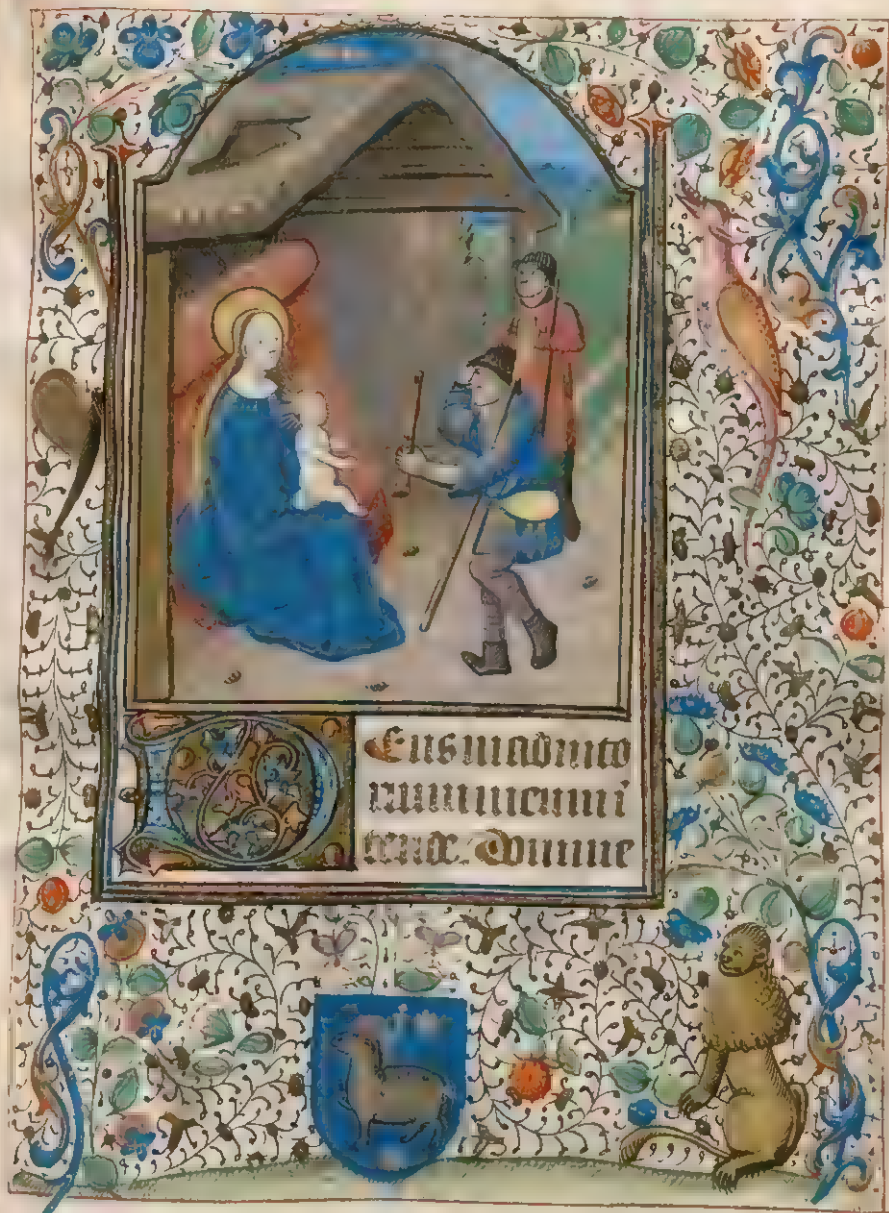 Deus in adiuto
rium meum i
tende. Domine